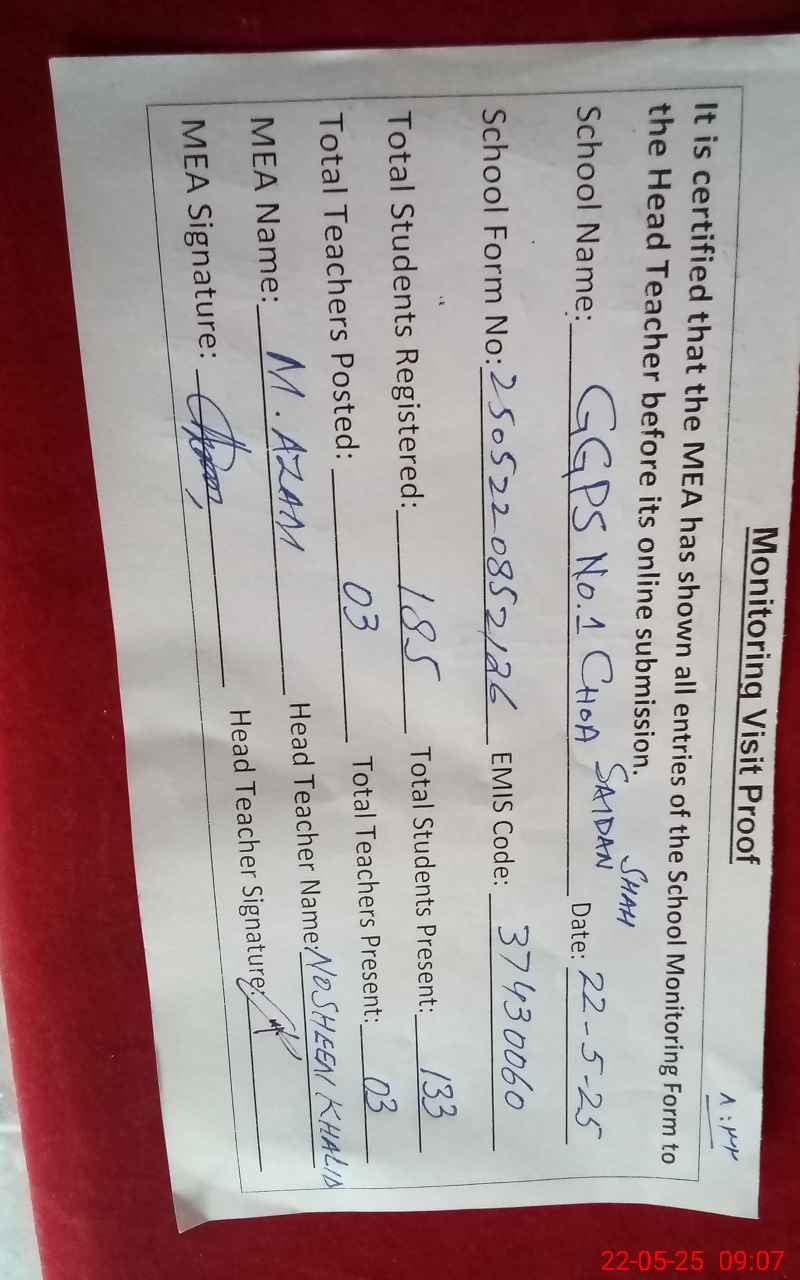 Monitoring Visit Proof
۸:۳۳
It is certified that the MEA has shown all entries of the School Monitoring Form to
the Head Teacher before its online submission.
School Name: GGPS No.1 CHOA SAIDAN SHAH Date: 22-5-25
School Form No: 2505220852126 EMIS Code: 37430060
Total Students Registered: 185 Total Students Present: 133
Total Teachers Posted: 03 Total Teachers Present: 03
MEA Name: M. AZAM Head Teacher Name: NOSHEEN KHALID
MEA Signature: Head Teacher Signature:
22-05-25 09:07